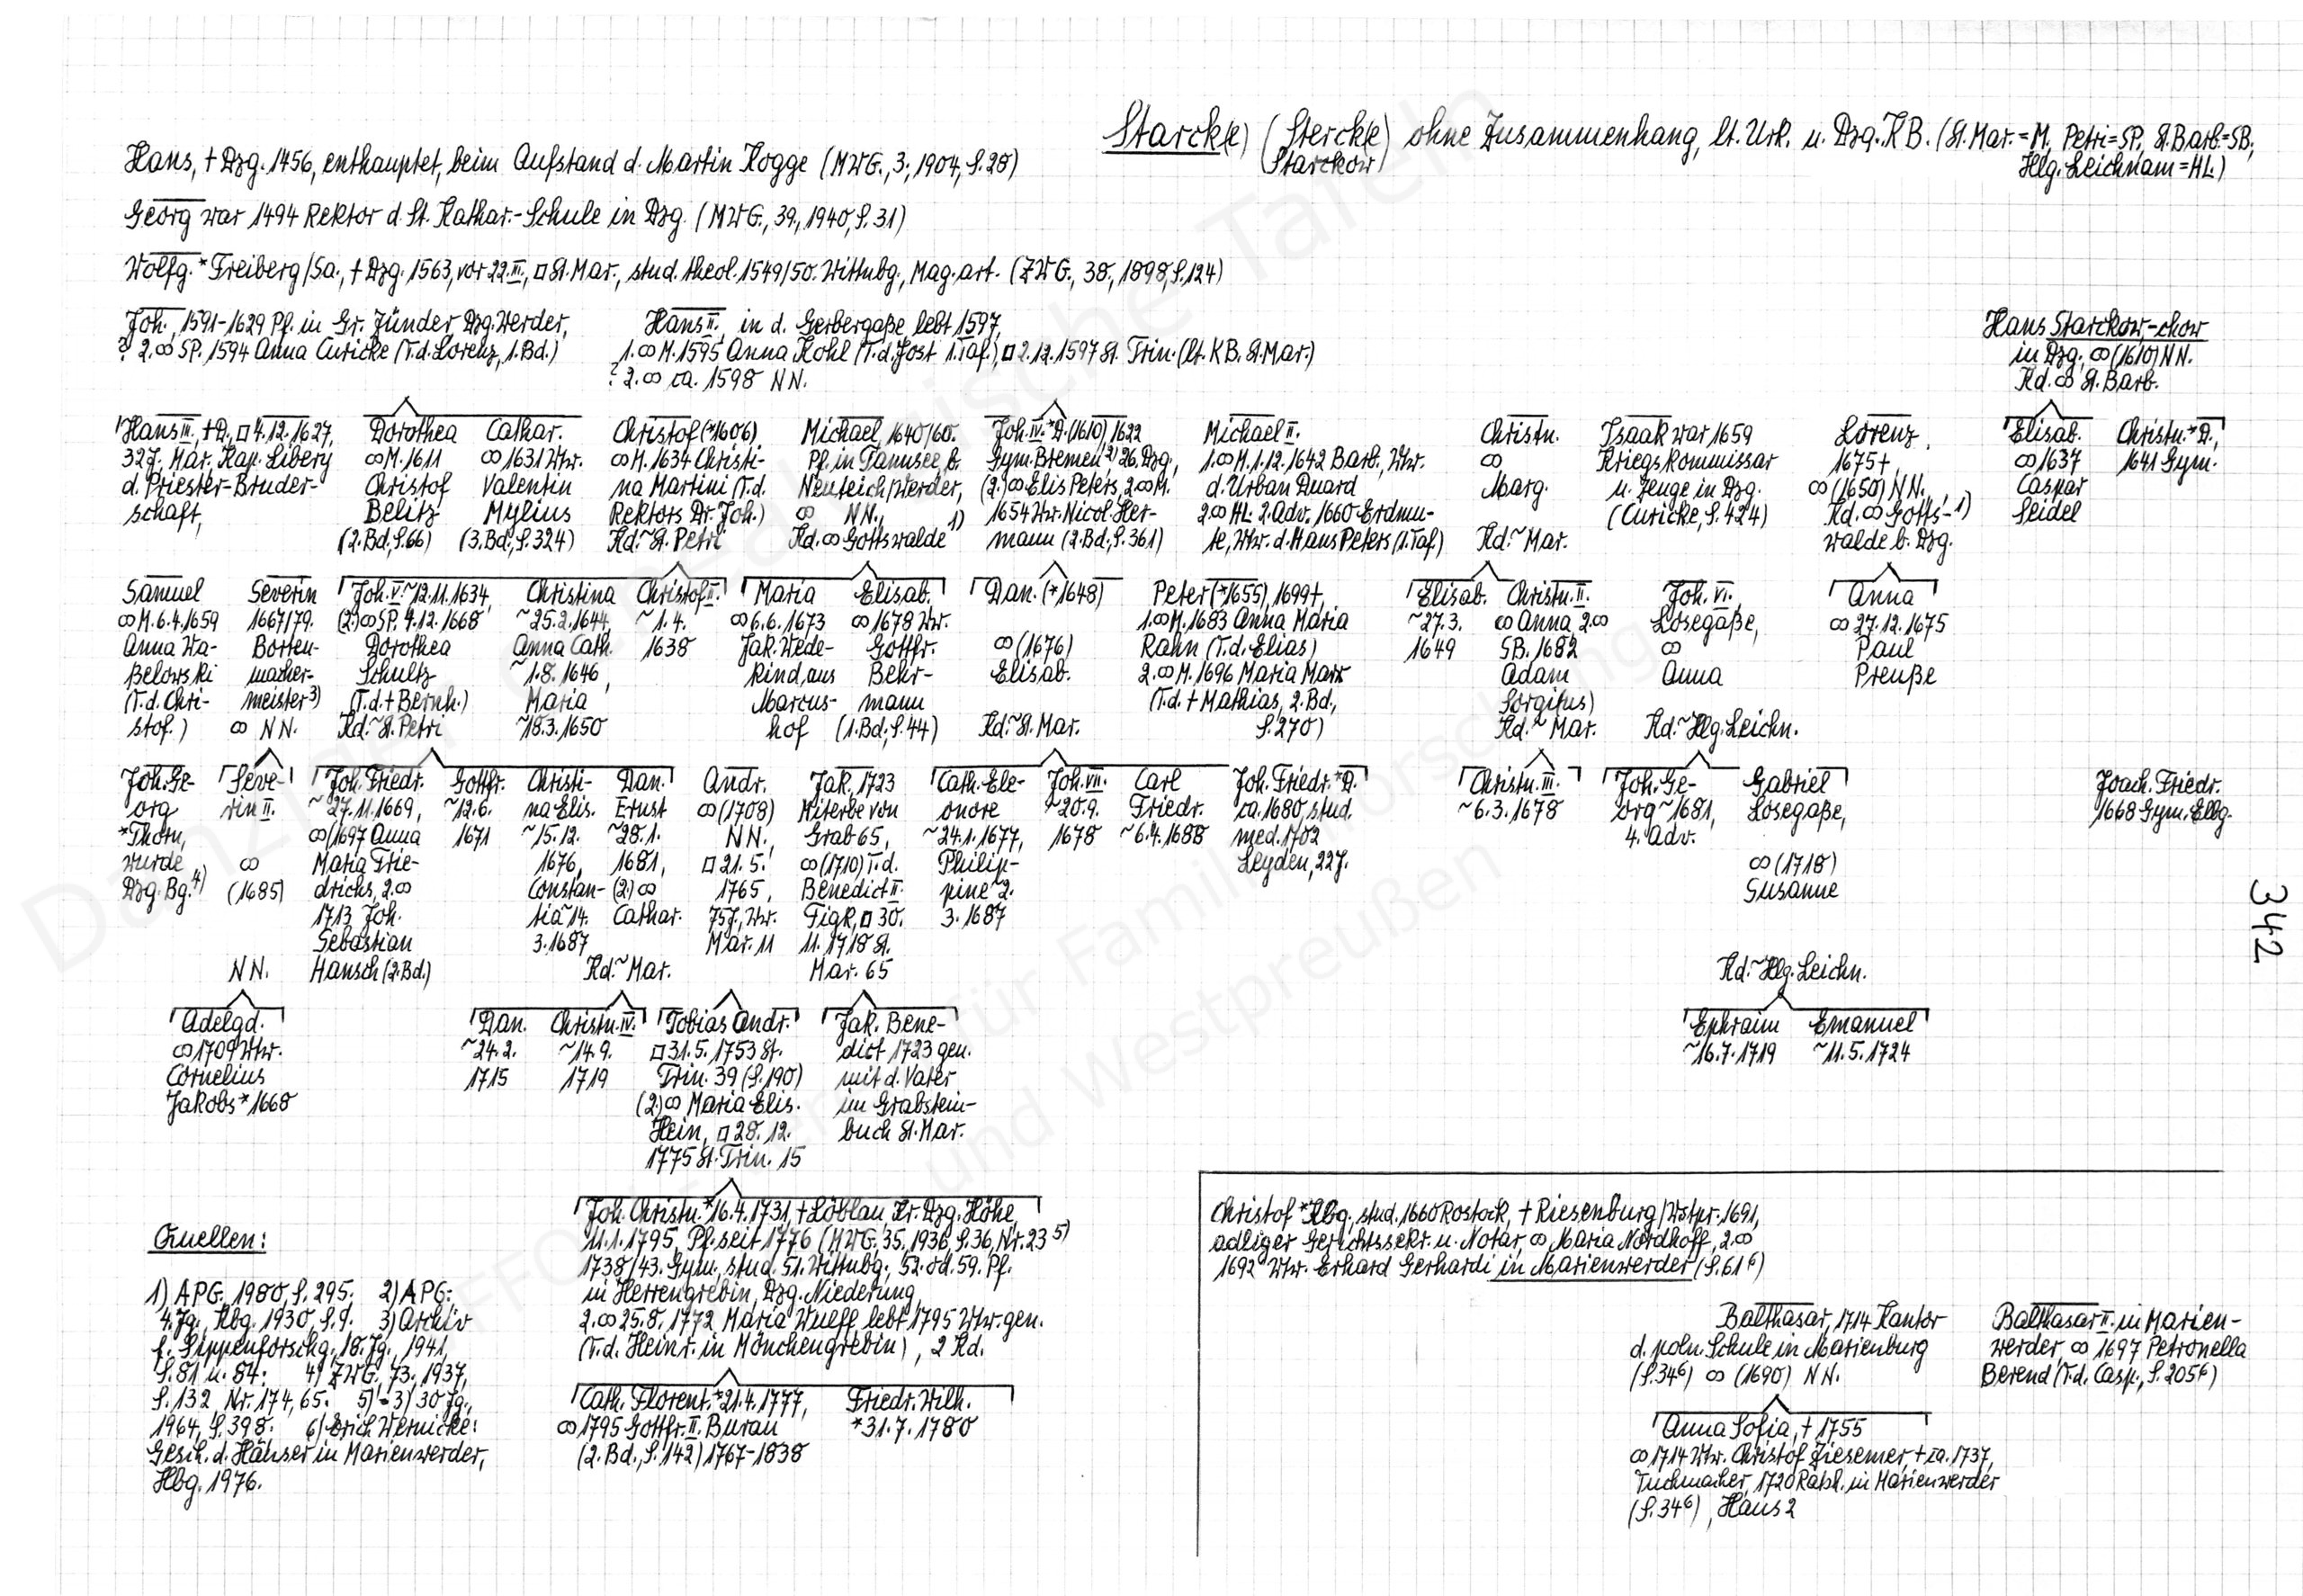 Starck(e) (Sterck(e) ohne Zusammenhang, lt. Urk. u. Dzg. KB. (St. Mar.=M, Petri=SP, St. Barb=SB,
Starckow)
Hlg. Leichnam=HL)
Hans, + Dzg. 1456, enthauptet, beim Aufstand d. Martin Kogge (MWG., 3., 1904, S. 28)
Georg war 1494 Rektor d. St. Kathar.-Schule in Dzg. (MWG., 39., 1940, S. 31)
Wolfg. *Freiberg/Sa., + Dzg. 1563, vor 22. III., □ St. Mar., stud. theol. 1549/50. Wittnbg., Mag. art. (ZWG., 38., 1898, S. 124)
Joh., 1591-1629 Pf. in Gr. Zünder, Dzg. Werder,
? 2.∞ SP. 1594 Anna Curicke (T. d. Lorenz, 1. Bd.)
Hans II., in d. Gerbergaße lebt 1597,
1.∞ M. 1595 Anna Kohl (T. d. Jost 1. Taf.), □ 2.12.1597 St. Trin. (lt. KB. St. Mar.)
? 2.∞ ca. 1598 NN.
Hans Starckow, -chow
in Dzg., ∞ (1610) NN.
Kd. ∞ St. Barb.
Hans III., + D., □ 4.12.1627,
32J. Mar. Kap. Libery
d. Priester-Bruder-
schaft,
Dorothea
∞ M. 1611
Christof
Belitz
(2. Bd., S. 66)
Cathar.
∞ 1631 Wwr.
Valentin
Mylius
(3. Bd., S. 324)
Christof (*1606)
∞ M. 1634 Christi-
na Martini (T. d.
Rektors Dr. Joh.)
Kd. ~ St. Petri
Michael, 1640/60.
Pf. in Tannsee, b.
Neuteich/Werder,
∞ NN., 1)
Kd. ∞ Gottswalde
Joh. IV. *D. (1610), 1622
Gym. Bremen 2) 26. Dzg.,
(2.) ∞ Elis Peters, 2.∞ M.
1654 Wr. Nicol. Her-
mann (2. Bd., S. 361)
Michael II.
1.∞ M. 1.12.1642 Barb., Ww.
d. Urban Quard
2.∞ HL. 2. Adv. 1660 Erdmu-
te, Ww. d. Hans Peters (1. Taf)
Christn.
∞
Marg.
Kd. ~ Mar.
Isaak war 1659
Kriegskommissar
u. Zeuge in Dzg.
(Curicke, S. 424)
Lorenz,
1675+,
∞ (1650) NN.,
Kd. ∞ Gotts- 1)
walde b. Dzg.
Elisab.
∞ 1637
Caspar
Seidel
Christn. *D.,
1641 Gym.
Samuel
∞ M. 6.4.1659
Anna Wa-
belowski
(T. d. Chri-
stof.)
Severin
1667/79.
Borten-
macher-
meister 3)
∞ NN.
Joh. V. ~ 12.11.1634,
(2.) ∞ SP. 4.12.1668
Dorothea
Schultz
(T. d. + Bernh.)
Kd. ~ St. Petri
Christina
~ 25.2.1644,
Anna Cath.
~ 1.8.1646,
Maria
~ 18.3.1650
Christof II.
~ 1.4.
1638
Maria
∞ 6.6.1673
Jak. Wede-
kind, aus
Marcus-
hof
Elisab.
∞ 1678 Wr.
Gottfr.
Behr-
mann
(1. Bd., S. 44)
Dan. (*1648)
∞ (1676)
Elisab.
Kd. ~ St. Mar.
Peter (*1655), 1699+,
1.∞ M. 1683 Anna Maria
Rahn (T. d. Elias)
2.∞ M. 1696 Maria Marx
(T. d. + Mathias, 2. Bd.,
S. 270)
Elisab.
~ 27.3.
1649
Christn. II.
∞ Anna 2.∞
SB. 1682
Adam
Sorgitus)
Kd. ~ Mar.
Joh. VI.,
Losegaße,
∞
Anna
Kd. ~ Hlg. Leichn.
Anna
∞ 27.12.1675
Paul
Preuße
Joh. Ge-
org
*Thorn,
wurde
Dzg. Bg. 4)
Seve-
rin II.
∞
(1685)
NN.
Joh. Friedr.
~ 27.11.1669,
∞ (1697 Anna
Maria Frie-
drichs, 2.∞
1713 Joh.
Sebastian
Hansch (2. Bd.)
Gottfr.
~ 12.6.
1671
Christi-
na Elis.
~ 15.12.
1676,
Constan-
tia ~ 14.
3.1687
Dan.
Ernst
~ 28.1.
1681,
(2.) ∞
Cathar.
Kd. ~ Mar.
Andr.
∞ (1708)
NN.,
□ 21.5.
1765,
75J., Wr.
Mar. 11
Jak., 1723
Miterbe von
Grab 65,
∞ (1710) T. d.
Benedict II.
Figk, □ 30.
11.1718 St.
Mar. 65
Cath. Ele-
onore
~ 24.1.1677,
Philip-
pine ~ 2.
3.1687
Joh. VII.
~ 20.9.
1678
Carl
Friedr.
~ 6.4.1688
Joh. Friedr. *D.
ca. 1680, stud.
med. 1702
Leyden, 22J.
Christn. III.
~ 6.3.1678
Joh. Ge-
org ~ 1681,
4. Adv.
Gabriel
Losegaße,
∞ (1718)
Susanne
Kd. ~ Hlg. Leichn.
Joach. Friedr.
1668 Gym. Elbg.
Adelgd.
∞ 1709 Wwr.
Cornelius
Jakobs *1668
Dan.
~ 24.2.
1715
Christn. IV.
~ 14.9.
1719
Tobias Andr.
□ 31.5.1753 St.
Trin. 39 (S. 190)
(2.) ∞ Maria Elis.
Hein, □ 28.12.
1775 St. Trin. 15
Jak. Bene-
dict 1723 gen.
mit d. Vater
im Grabstein-
buch St. Mar.
Ephraim
~ 16.7.1719
Emanuel
~ 11.5.1724
342
Joh. Christn. *16.4.1731, + Löblau, Kr. Dzg. Höhe,
11.1.1795, Pf. seit 1776 (MWG. 35. 1936, S. 36, Nr. 23 5)
1738/43. Gym., stud. 51. Wittnbg., 52. od. 59. Pf.
in Herrengrebin, Dzg. Niederung,
2.∞ 25.8.1772 Maria Wulff lebt 1795 Ww. gen.
(T. d. Heinr. in Mönchengrebin), 2 Kd.
Cath. Florent. *21.4.1777,
∞ 1795 Gottfr. II. Burau
(2. Bd., S. 142) 1767-1838
Friedr. Wilh.
*31.7.1780
Quellen:
1) APG. 1980, S. 295. 2) APG:
4. Jg. Kbg. 1930, S. 9. 3) Archiv
f. Sippenforschg., 18. Jg., 1941,
S. 81 u. 84. 4) ZWG. 73. 1937,
S. 132, Nr. 174, 65. 5) = 3) 30 Jg.,
1964, S. 398. 6) Erich Wernicke:
Gesch. d. Häuser in Marienwerder,
Hbg. 1976.
Christof *Kbg., stud. 1660 Rostock, + Riesenburg/Wstpr. 1691,
adliger Gerichtssekr. u. Notar, ∞ Maria Nordhoff, 2.∞
1692 Wr. Erhard Gerhardi in Marienwerder (S. 61 6)
Balthasar, 1714 Kantor
d. poln. Schule in Marienburg
(S. 34 6) ∞ (1690) NN.
Balthasar II. in Marien-
werder, ∞ 1697 Petronella
Berend (T. d. Casp., S. 205 6)
Anna Sofia, + 1755
∞ 1714 Wr. Christof Ziesemer, + ca. 1737,
Tuchmacher, 1720 Ratsh. in Marienwerder
(S. 34 6), Haus 2